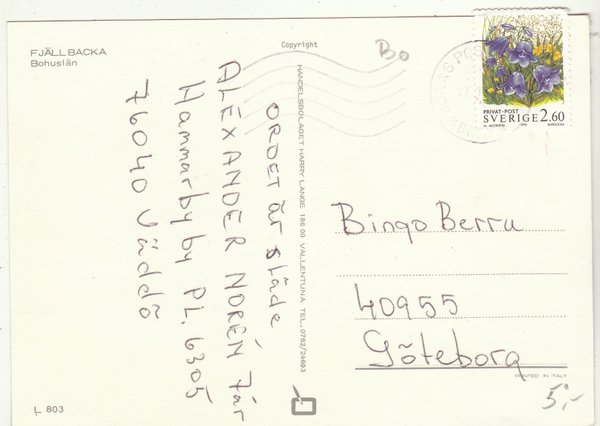 FJÄLLBACKA
Bohuslän
Copyright
Bo
PRIVAT-POST
SVERIGE 2.60
1993
ORDET är släde
ALEXANDER NORÉN 7år
Hammarby by PL. 6305
76040 Väddö
HANDELSBOLAGET HARRY LANGE 186 00 VALLENTUNA TEL. 0762/24693
Bingo Berra
40955
Göteborg
PRINTED IN ITALY
5:-
L 803